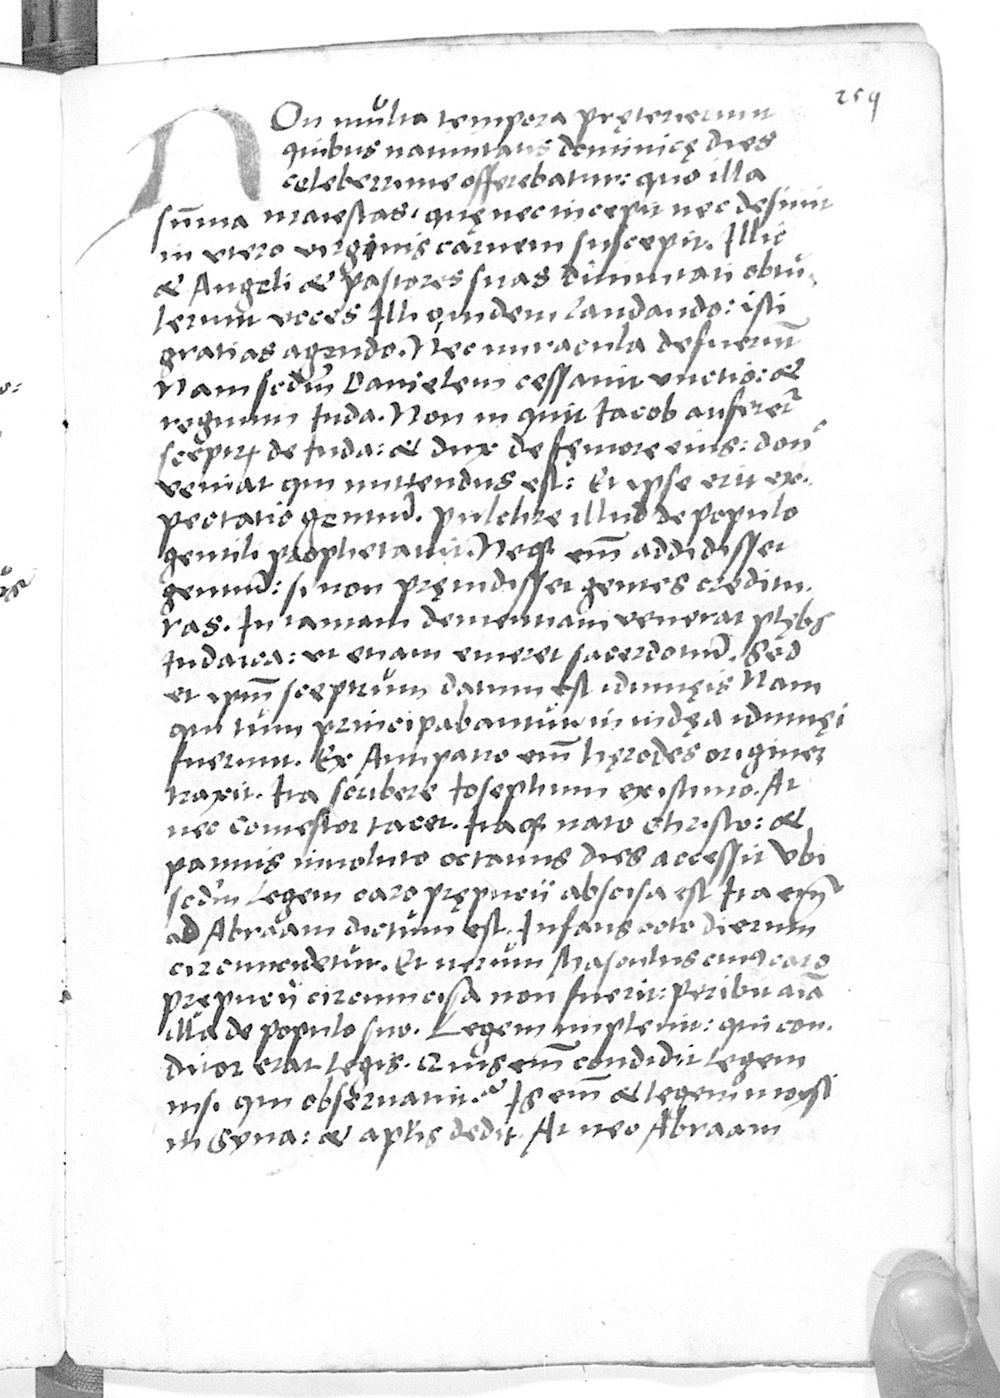 259
NOn multa tempora pręterierunt
quibus natiuitatis dominicę dies
celeberrime offerebatur: quo illa
sum̄a maiestas, quę nec incepit nec desinit
in vtero virginis carnem suscepit. Illic
& Angeli & pastores suas diuinitati obtu-
lerunt voces Illi quidem laudando: isti
gratias agendo. Nec miracula defuerūt
Nam scd̄m Danielem cessauit vnctio: &
regnum Iuda. Non in quit Iacob auferet᷑
sceptrꝫ de Iuda: & dux de fęmore eius: don̄c
veniat qui mittendus est: Et ipse erit ex-
pectatio gentiū. pulchre illud de populo
gentili prophetauit. Neqꝫ em̄ addidisset
gentiū: si non pręuidisset gentes creditu-
ras. In tantam dementiam venerat plębs
Iudaica: vt etiam emeret sacerdotiū. Sed
et ipm̄ sceptrum datum est idumęis Nam
qui tum principabantur in iudęa idumęi
fuerunt. Ex Antipatro em̄ hęrodes originem
traxit. Ita scribere Iosephum existimo. At
nec Comestor tacet. Itaqꝫ nato Christo: &
pannis inuoluto octauus dies accessit Vbi
scd̄m Legem caro pręputii abscisa est Ita em̄
ad Abraam dictum est. Infans octo dierum
circumcidetur. Et rursum Masculus cuiꝰ caro
pręputii circumcisa non fuerit: peribit aīa
illa de populo suo. Legem impleuit: qui con-
ditor erat legis. Quis em̄ condidit legem
nisi qui obseruauit? Is em̄ & legem moysi
in Syna: & aplis dedit. At neo Abraam